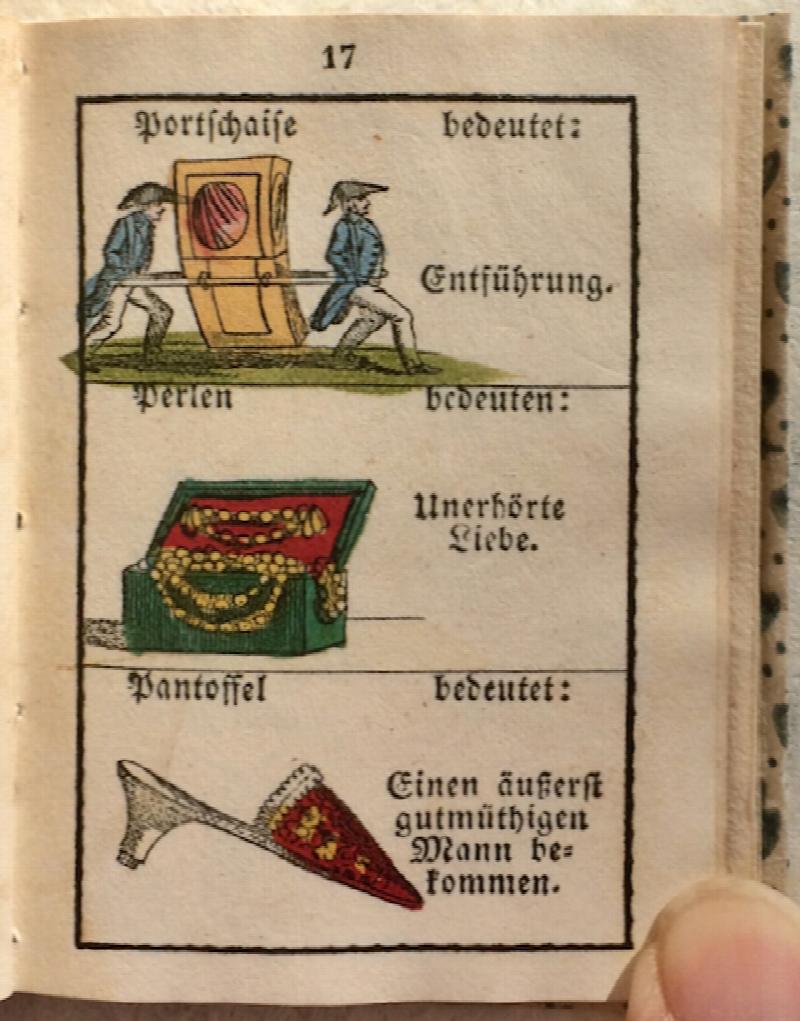 17
Portschaise bedeutet:
Entführung.
Perlen bedeuten:
Unerhörte
Liebe.
Pantoffel bedeutet:
Einen äußerst
gutmüthigen
Mann be=
kommen.